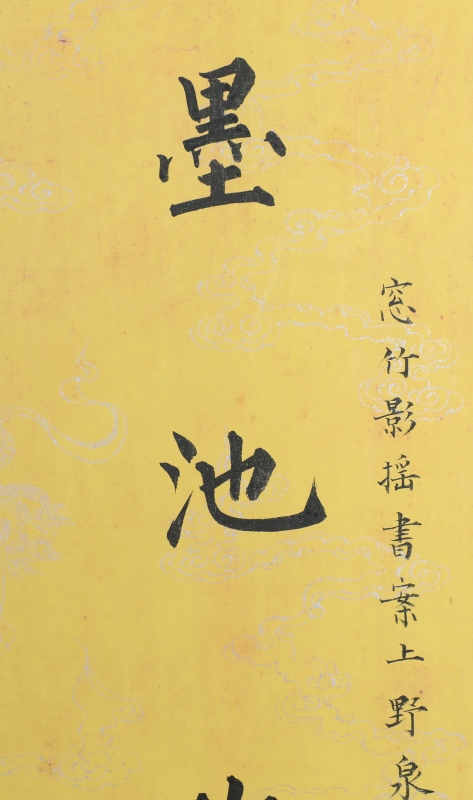 窓竹影揺書案上野泉
墨池